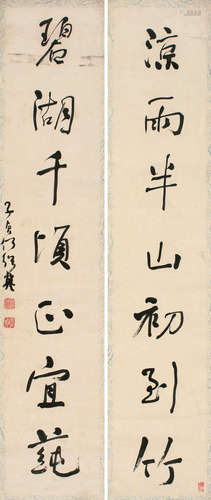 凉雨半山初到竹
碧湖千頃正宜蓴
子貞何紹基